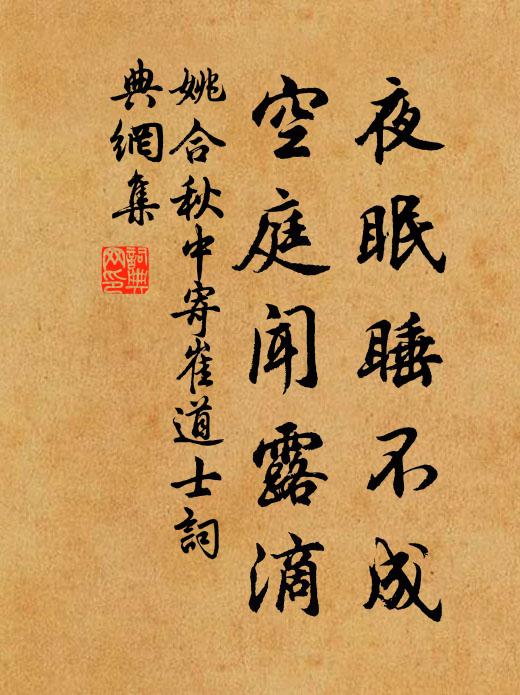 夜眠睡不成
空庭聞露滴
姚合秋中寄崔道士詞
典網集
詞典
网印